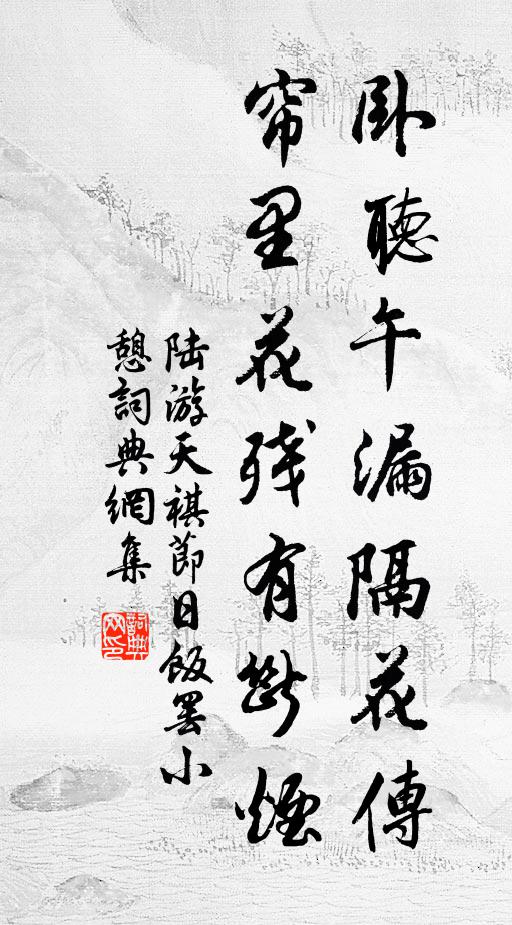 卧聽午漏隔花傳
帘里花殘有斷煙
陆游天祺節日飯罢小
憩詞典網集
詞典网印